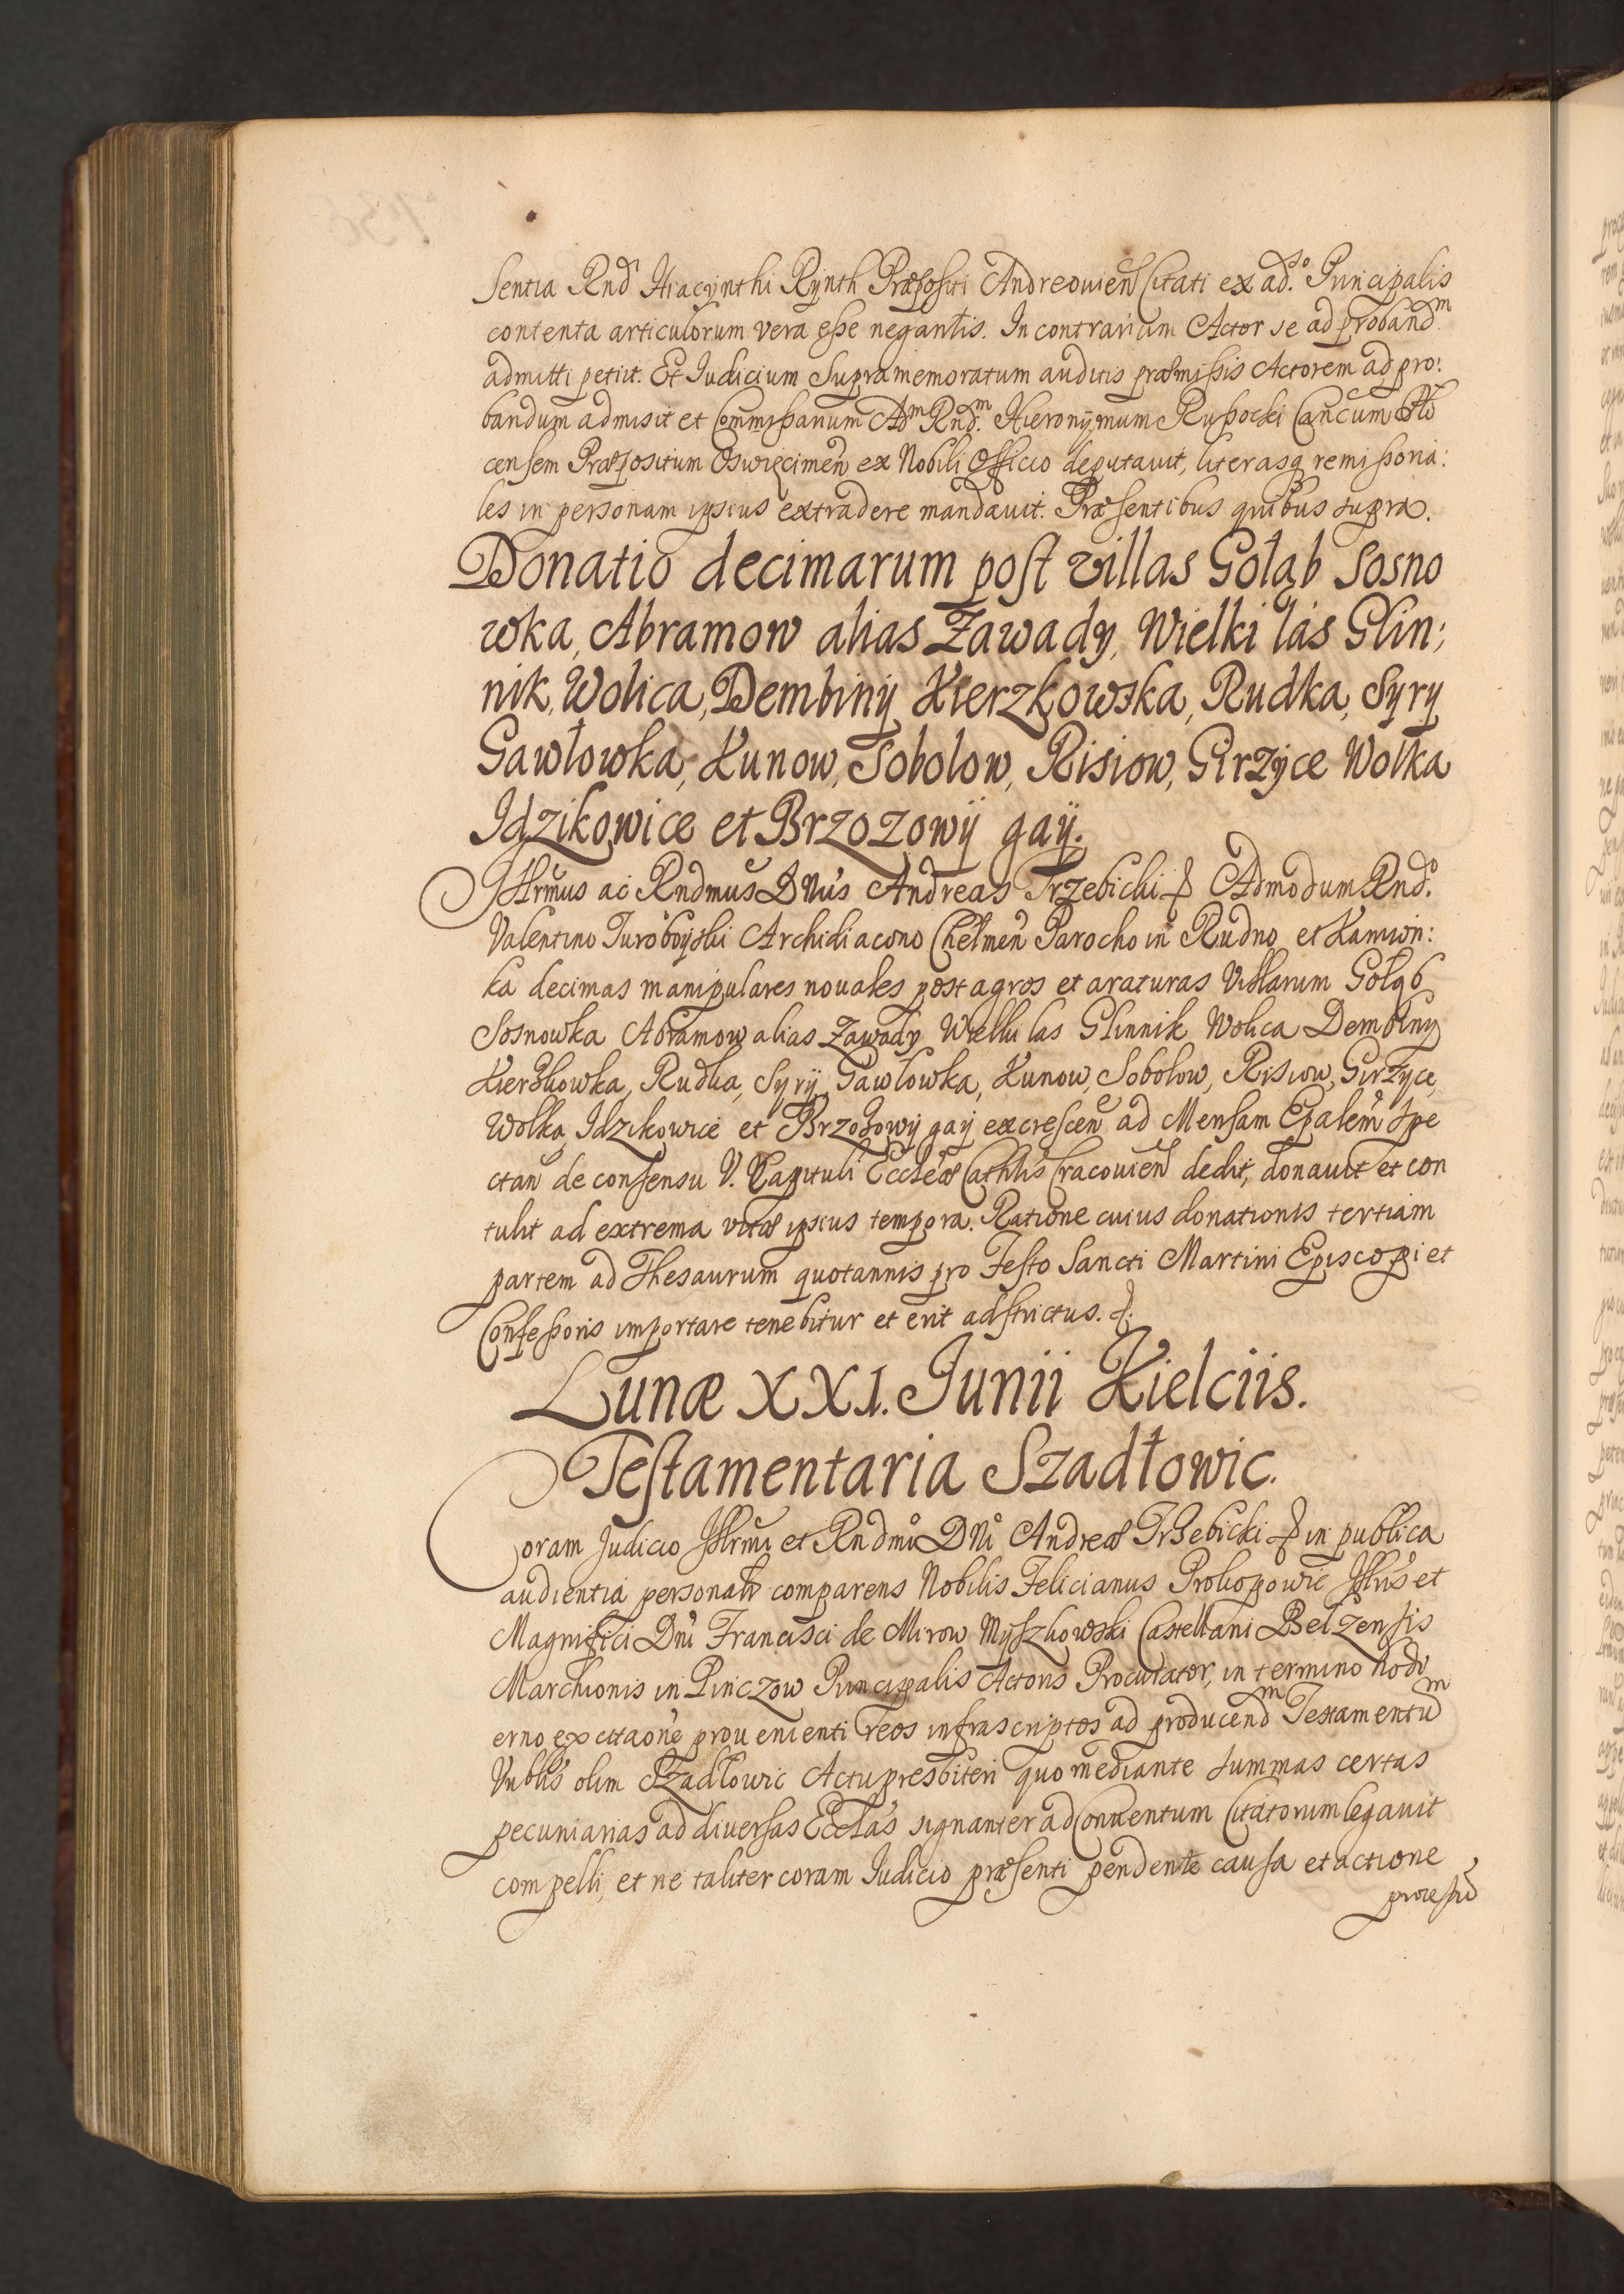 sentia Rnd Hiacynthi Rynth Præpositi Andreovien Citati ex ad.so Principalis
contenta articulorum vera esse negantis. In contrarium Actor se ad proband.m
admitti petiit. Et Iudicium supramemoratum auditis præmissis Actorem ad pro:
bandum admisit et Commissarium Adm Rnd.m Hieronymum Russocki Cancum
censem Præpositum Oswięcimen ex Nobili Officio deputavit, literasq remissoria:
les in personam ipsius extradere mandavit. Præsentibus quibus supra.
Donatio decimarum post villas Gołąb Sosno
wka, Abramow alias Zawady, Wielki las Glin;
nik, Wolica, Dembiny Kierzkowska, Rudka, Syry
Gawłowka, Kunow, Sobolow, Risiow, Girzyce Wolka
Idzikowice et Brzozowy gaÿ.
Illrmus ac Rndmus DNus Andreas Trzebicki Admodum Rnd.o
Valentino Turoboyski Archidiacono Chełmen Parocho in Rudno et Kamion:
ka decimas manipulares novales post agros et araturas Villarum Gołąb
Sosnowka Abramow alias Zawady Wielki las Glinnik Wolica Dembiny
Kierzkowka, Rudka, Syrÿ, Gawłowka, Kunow, Sobolow, Risiow, Girzyce,
Wolka, Idzikowice et Brzozowÿ gaÿ excrescen ad Mensam Epalem spe
ctan de consensu V. Capituli Ecclæ Cathlis Cracovien dedit, donavit et con
tulit ad extrema vitæ ipsius tempora. Ratione cuius donationis tertiam
partem ad Thesaurum quotannis pro Festo Sancti Martini Episcopi et
Confessoris importare tenebitur et erit adstrictus.
Lunæ XXI. Junii Kielciis.
Testamentaria Szadłowic.
Coram Judicio Illrmi et Rndmi DNi Andreæ Trzebicki in publica
audientia personalr comparens Nobilis Felicianus Prokopowic Illris et
Magnifici Dni Francisci de Mirow Myszkowski Castellani Belzensis
Marchionis in Pinczow Principalis Actoris Procurator, in termino hodi
erno ex citaone provenienti reos infrascriptos ad producend.m Testamentum
Vnblis olim Szadłowic Actupresbiteri quo mediante summas certas
pecuniarias ad diversas Ecclas signanter ad Conventum Citatorum legavit
compelli, et ne taliter coram Iudicio præsenti pendente causa et actione